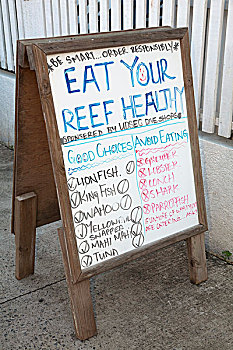 *BE SMART...ORDER RESPONSIBLY*
EAT YOUR
REEF HEALTHY
SPONSORED BY DIVE SHOPS
GOOD CHOICES
LIONFISH
KING FISH
WAHOO
YELLOWTAIL
SNAPPER
MAHI MAHI
TUNA
AVOID EATING
GROUPER
LOBSTER
CONCH
SHARK
PARROTFISH